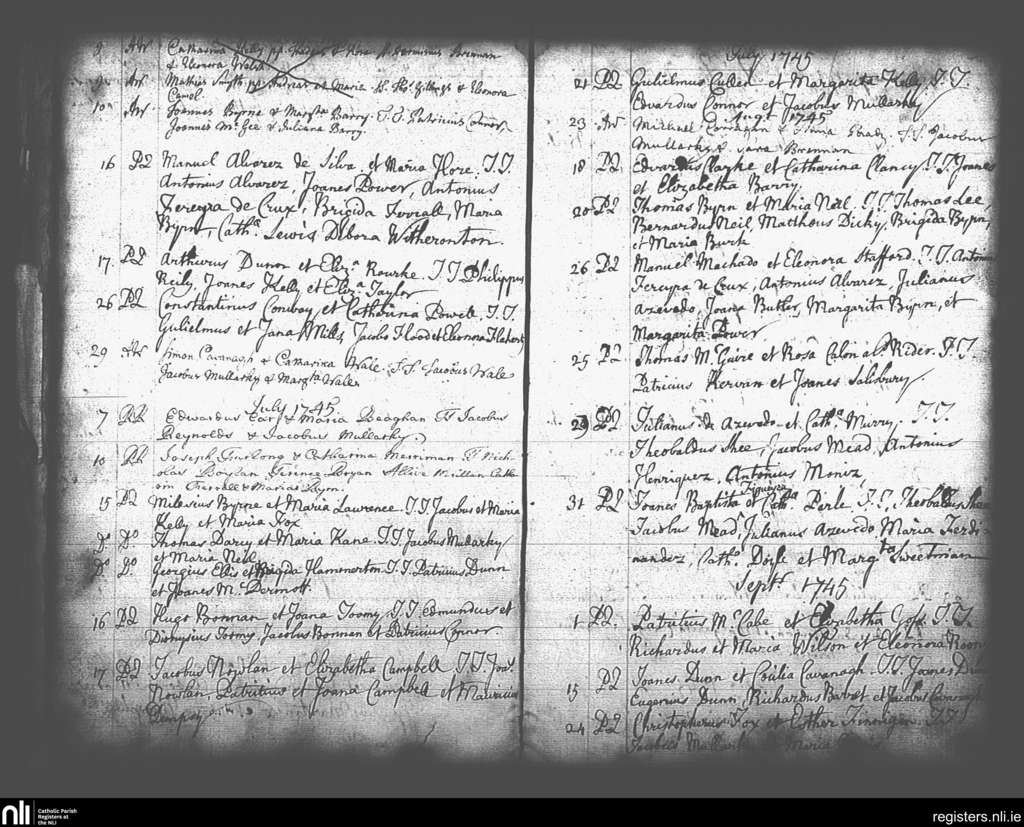 9 Catharina Kelly pp.
& Eleonora Walsh
9 Mathias Smyth pp Andreas et Maria & Eleonora
Camel
10 Joannes Byrne & Margta Barry. T.T. Patricius Connor
Joannes Mc Gee & Juliana Barry.
16 PD Manuel Alvorez de Silva et Maria Hore. T.T.
Antonius Alvarez, Joanes Power, Antonius
Fereyra de Crux, Brigida Maria
Byrn, Catha. Lewis Debora Witheronton.
17. PD Arthurus Dunon et Eliza Rourke. T.T. Philippus
Reily, Joanes Kelly et Eliza Taylor
26 PD Constantinus Conway, et Catharina Powell, T.T.
Gulielmus et Jana Mills, Jacobs Flood et Eleonora Flahert
29 Simon Cavanagh & Catharina Wale. T.T. Jacobus Wale
Jacobus Mullarky & Margta Wale
July 1745
7 Edwardus & Maria Beaghan Ts Jacobus
Reynolds & Jacobus Mullarky.
10 Joseph Furlong & Catharina Merriman T. Nich-
olas Boylan Bryan
& Maria Byrn.
15 PD Milesius Byrne et Maria Lawrence. T.T. Jacobus et Maria
Kelly et Maria Fox
Do Do Thomas Darcy et Maria Kane. T.T. Jacobus Mullarky
et Maria Neil
Do Do. Georgius Ellis et Brigida Hammerton. T.T. Patricius Dunn
et Joanes Mc Dermott.
16 PD Hugo Bonnan, et Joana Toomy, T.T. Edmundus et
Dionysius Toomy, Jacobus Bonnan et Patricius Connor.
17 PD Jacobus Nowlan et Elizabetha Campbell T.T. Joas
Nowlan, Patritius et Joana Campbell et Mauricius
Dempsy
July 1745
21 PD Gulielmus Cullen et Margarita Kelly. T.T.
Edvardus Connor et Jacobus Mullarky
Augt 1745
23 Michael Corragan & T.T. Jacobus
Mullarky & Jana Brennan
18 PD Edvardus Clarke et Catharina Clancy T.T. Joanes
et Elizabetha Barry
20 PD Thomas Byrn et Maria Neil. T.T. Thomas Lee
Bernardus Neil, Mattheus Dicky, Brigida Byrn,
et Maria Burk
26 PD Manuel Machado et Eleonora Stafford. T.T. Antonius
Fereyra de Crux, Antonius Alvarez, Julianus
Azevedo, Joana Butler, Margarita Byrn, et
Margarita Power
25 PD Thomas Mc Guire et Rosa Rider. T.T.
Patricius Kervan et Joanes Salisbury.
29 PD. Julianus de Azevedo et Catha. Murry. T.T.
Theobaldus Shee, Jacobus Mead, Antonius
Henriquez, Antonius Moniz
Figueyra
31 PD Joanes Baptista et Catha Perle. T.T. Theobaldus Shee
Jacobus Mead, Julianus Azevedo, Maria Ferdi
nandez, Catha. Doyle et Margta Sweetman
Septr 1745
1 PD. Patritius Mc Cabe et Elizabetha Goff. T.T.
Richardus et Maria Wilson et Eleonora Roon
15 PD Joanes Dunn et Cecilia Cavanagh. T.T. Joanes Dunn
Eugenius Dunn, Richardus et Jacobus Cavanagh
24 PD Christopherus Fox et Esther Finnigan. T.T.
Jacobus Mullarky Maria
nli Catholic Parish
Registers at
the NLI
registers.nli.ie